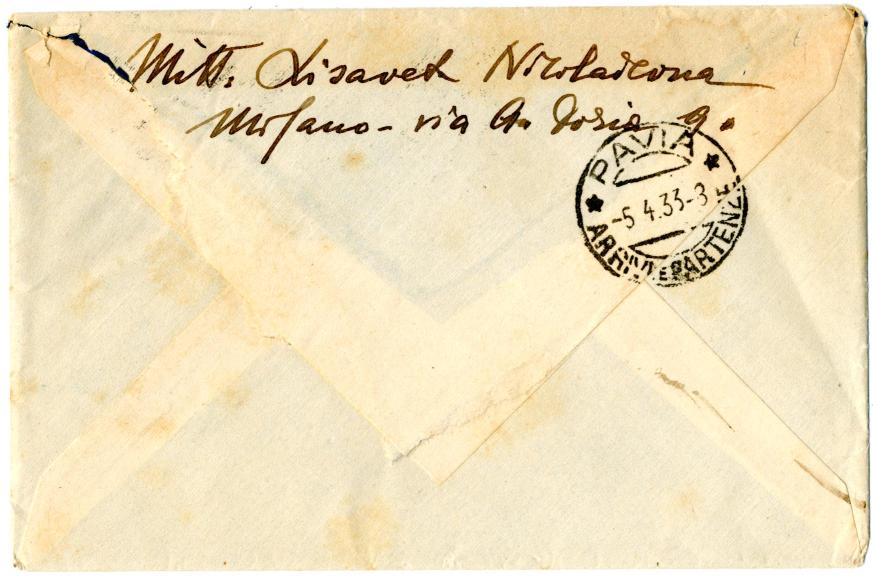 Mitt. Lisavet Nicolaievna
Milano - via A. Doria 9.
PAVIA
-5.4.33-8
ARRIVI E PARTENZE